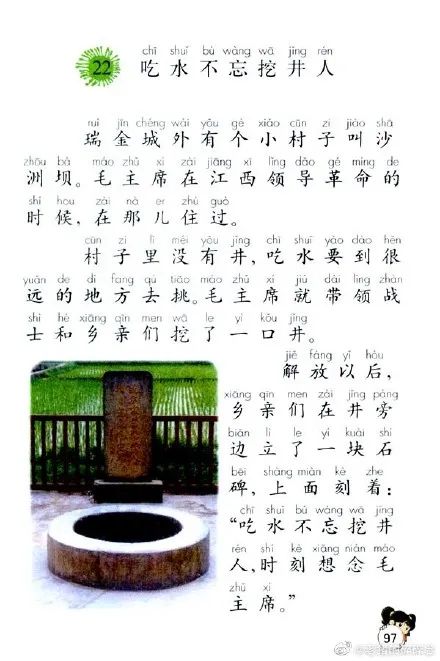 chī shuǐ bú wàng wā jǐng rén
22 吃水不忘挖井人
ruì jīn chéng wài yǒu gè xiǎo cūn zi jiào shā
瑞金城外有个小村子叫沙
zhōu bà máo zhǔ xí zài jiāng xī lǐng dǎo gé mìng de
洲坝。毛主席在江西领导革命的
shí hou zài nà er zhù guò
时候,在那儿住过。
cūn zi lǐ méi yǒu jǐng chī shuǐ yào dào hěn
村子里没有井,吃水要到很
yuǎn de dì fang qù tiāo máo zhǔ xí jiù dài lǐng zhàn
远的地方去挑。毛主席就带领战
shì hé xiāng qīn men wā le yì kǒu jǐng
士和乡亲们挖了一口井。
jiě fàng yǐ hòu
解放以后,
xiāng qīn men zài jǐng páng
乡亲们在井旁
biān lì le yí kuài shí
边立了一块石
bēi shàng miàn kè zhe
碑,上面刻着:
chī shuǐ bú wàng wā jǐng
“吃水不忘挖井
rén shí kè xiǎng niàn máo
人,时刻想念毛
zhǔ xí
主席。”
97